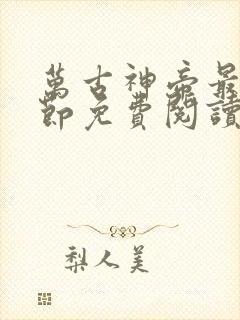 萬古神帝最
節免費閱讀
梨人美